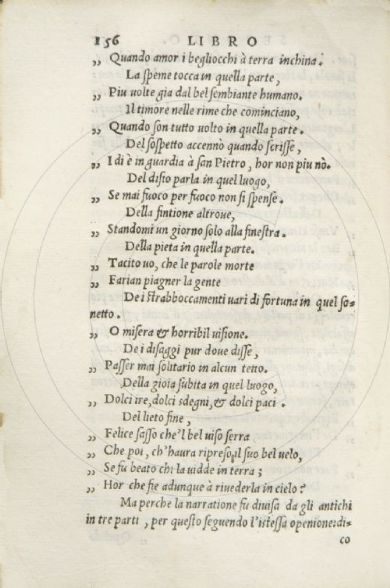 156 LIBRO
„ Quando amor i begliocchi à terra inchina.
La speme tocca in quella parte,
„ Piu uolte gia dal bel sembiante humano.
Il timore nelle rime che cominciano,
„ Quando son tutto uolto in quella parte.
Del sospetto accennò quando scrisse,
„ I di è in guardia à san Pietro, hor non piu nò.
Del disio parla in quel luogo,
„ Se mai fuoco per fuoco non si spense.
Della fintione altroue,
„ Standomi un giorno solo alla finestra.
Della pieta in quella parte.
„ Tacito uo, che le parole morte
„ Farian piagner la gente
De i straboccamenti uari di fortuna in quel so-
netto.
„ O misera & horribil uisione.
De i disaggi pur doue disse,
„ Passer mai solitario in alcun tetto.
Della gioia subita in quel luogo,
„ Dolci ire, dolci sdegni, & dolci paci.
Del lieto fine,
„ Felice sasso che'l bel uiso serra
„ Che poi, ch'haura ripreso, il suo bel uelo,
„ Se fu beato chi la uidde in terra;
„ Hor che fie adunque à riuederla in cielo?
Ma perche la narratione fu diuisa da gli antichi
in tre parti, per questo seguendo l'istessa openione: di-
co